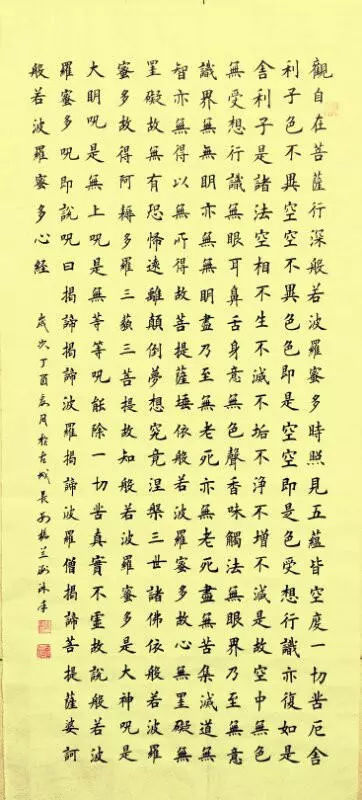 觀自在菩薩行深般若波羅蜜多時照見五蘊皆空度一切苦厄舍
利子色不異空空不異色色即是空空即是色受想行識亦復如是
舍利子是諸法空相不生不滅不垢不淨不增不減是故空中無色
無受想行識無眼耳鼻舌身意無色聲香味觸法無眼界乃至無意
識界無無明亦無無明盡乃至無老死亦無老死盡無苦集滅道無
智亦無得以無所得故菩提薩埵依般若波羅蜜多故心無罣礙無
罣礙故無有恐怖遠離顛倒夢想究竟涅槃三世諸佛依般若波羅
蜜多故得阿耨多羅三藐三菩提故知般若波羅蜜多是大神呪是
大明呪是無上呪是無等等呪能除一切苦真實不虛故說般若波
羅蜜多呪即說呪曰揭諦揭諦波羅揭諦波羅僧揭諦菩提薩婆訶
般若波羅蜜多心經
歲次丁酉月於古城長安楊蘭沐手